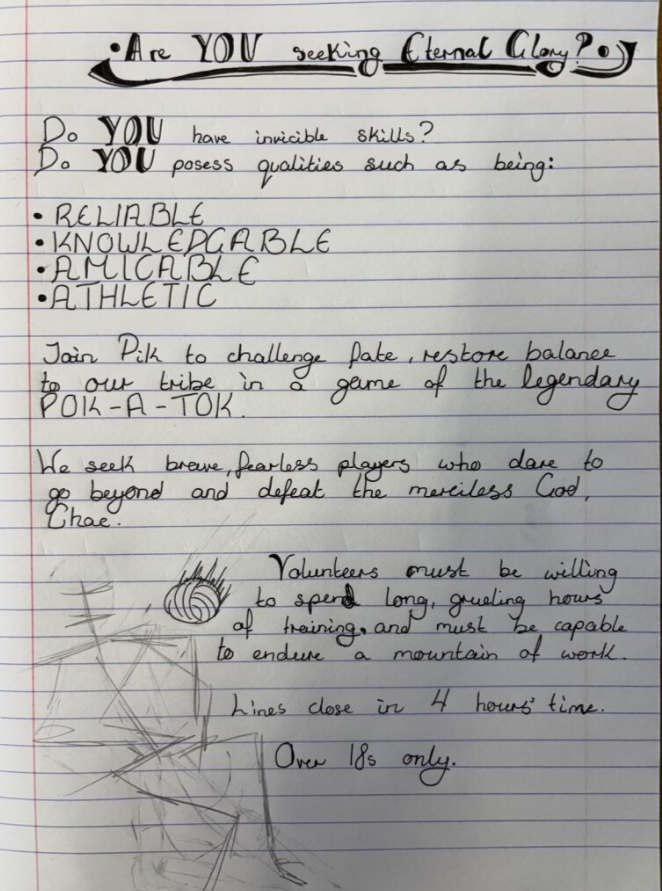 • Are YOU seeking Eternal Glory? •
Do YOU have invicible skills?
Do YOU posess qualities such as being:
• RELIABLE
• KNOWLEDGABLE
• AMICABLE
• ATHLETIC
Join Pik to challenge fate, restore balance
to our tribe in a game of the legendary
POK-A-TOK.
We seek brave, fearless players who dare to
go beyond and defeat the merciless God,
Chac.
Volunteers must be willing
to spend long, grueling hours
of training, and must be capable
to endure a mountain of work.
Lines close in 4 hours' time.
Over 18s only.